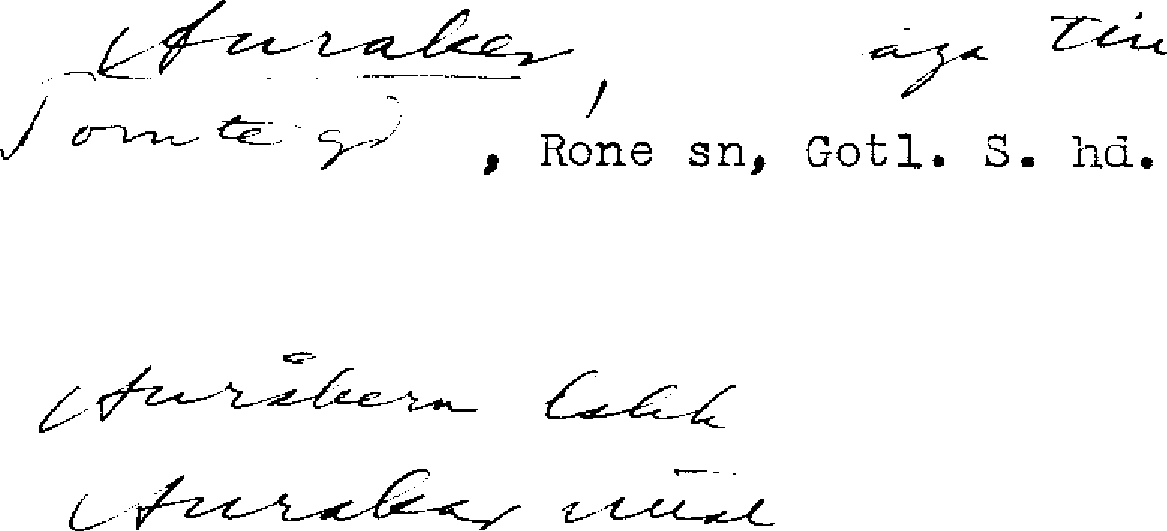 Auraker, äga till
Tomtegd, Rone sn, Gotl. S. hd.
Auråkern
Auraker